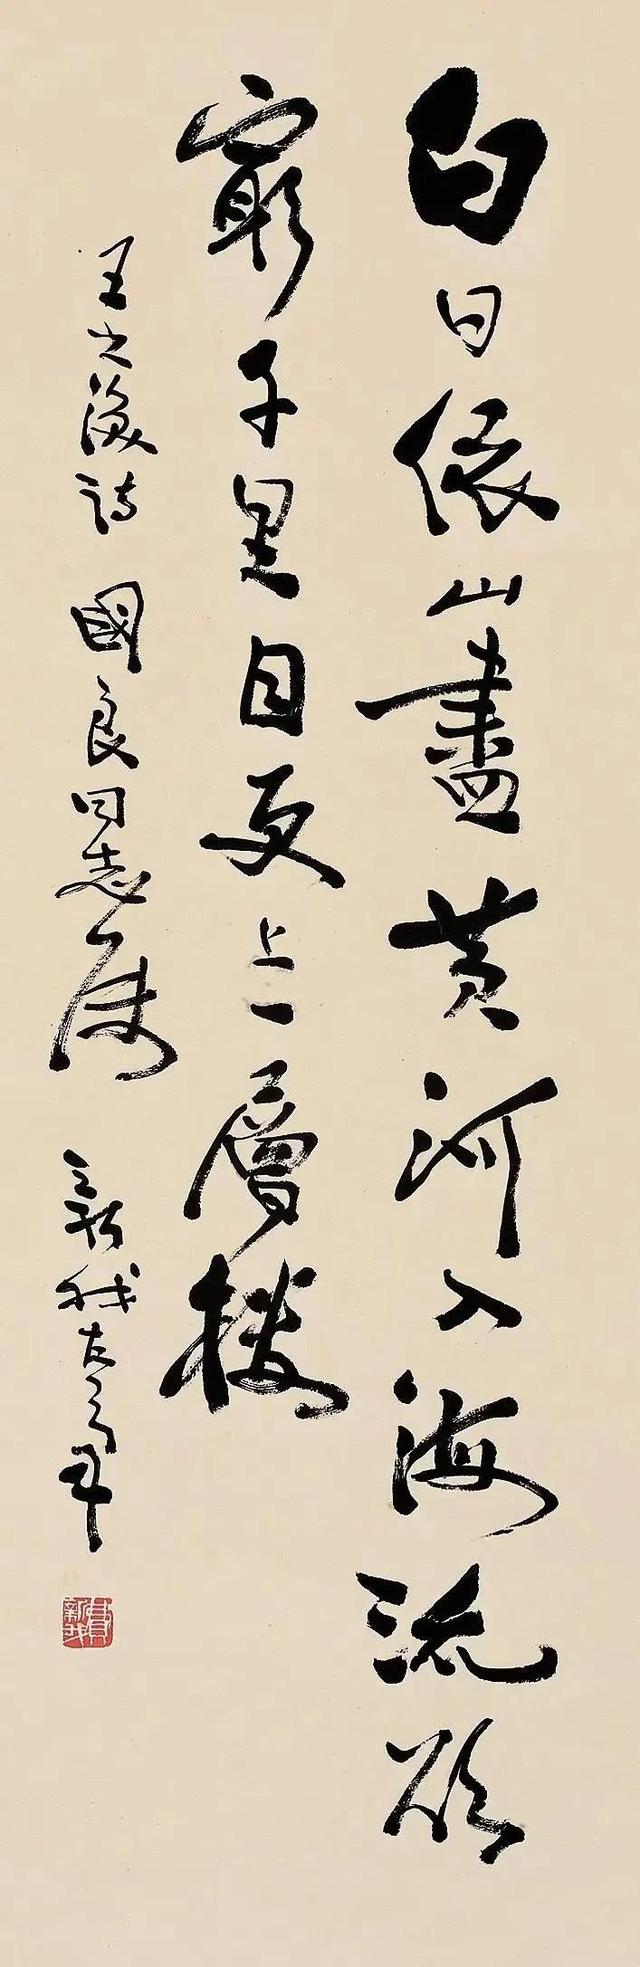 白日依山盡黄河入海流欲
窮千里目更上一層樓
王之渙詩 國良同志属 新我左筆
費新我